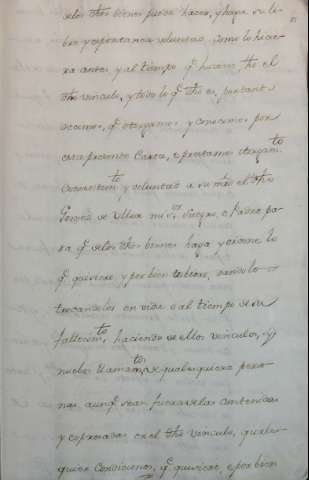 delos dhos bienes pueda hacer, y haga su li-
bre y espontanea voluntad, como lo hicie-
ra antes y al tiempo q.e hiciera dho el
dho vinculo, y todo lo q.e dho es, por tanto
decimos, q.e otorgamos y conocemos por
esta presente Carta, e prestamos otorgam.to
consentim.to y voluntad a su md el dho
de Ulloa mi s.or Suegro, e Padre pa-
ra q.e delos dhos bienes haga y ordene lo
q.e quisiere, y por bien tubiere,
trocandolos en vida o al tiempo de su
fallecim.to, haciendo de ellos vinculos, y
nuebos llamam.tos de qualesquiera perso-
nas aunq.e sean fuera delas contenidas
y espresadas en el dho vinculo, quales-
quier Condiciones, q.e quisiere, e por bien